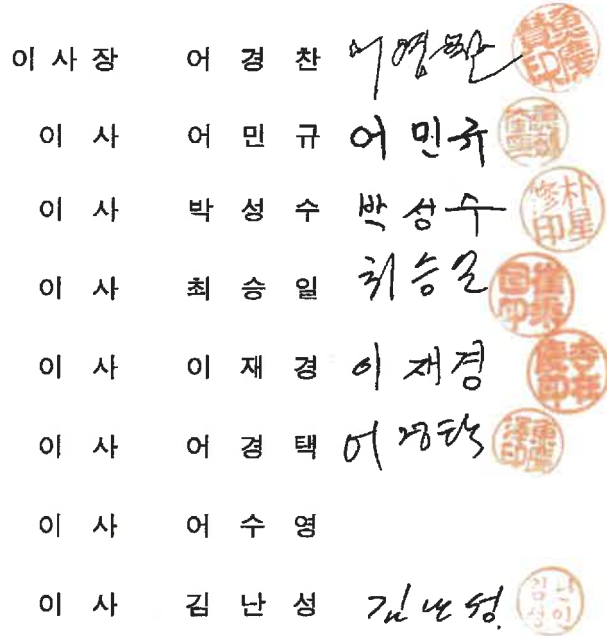 이 사 장 어 경 찬 어경찬
이 사 어 민 규 어 민 규
이 사 박 성 수 박 성 수 朴星修印
이 사 최 승 일 최승일
이 사 이 재 경 이 재 경
이 사 어 경 택 어경택
이 사 어 수 영
이 사 김 난 성 김난성 김난성인